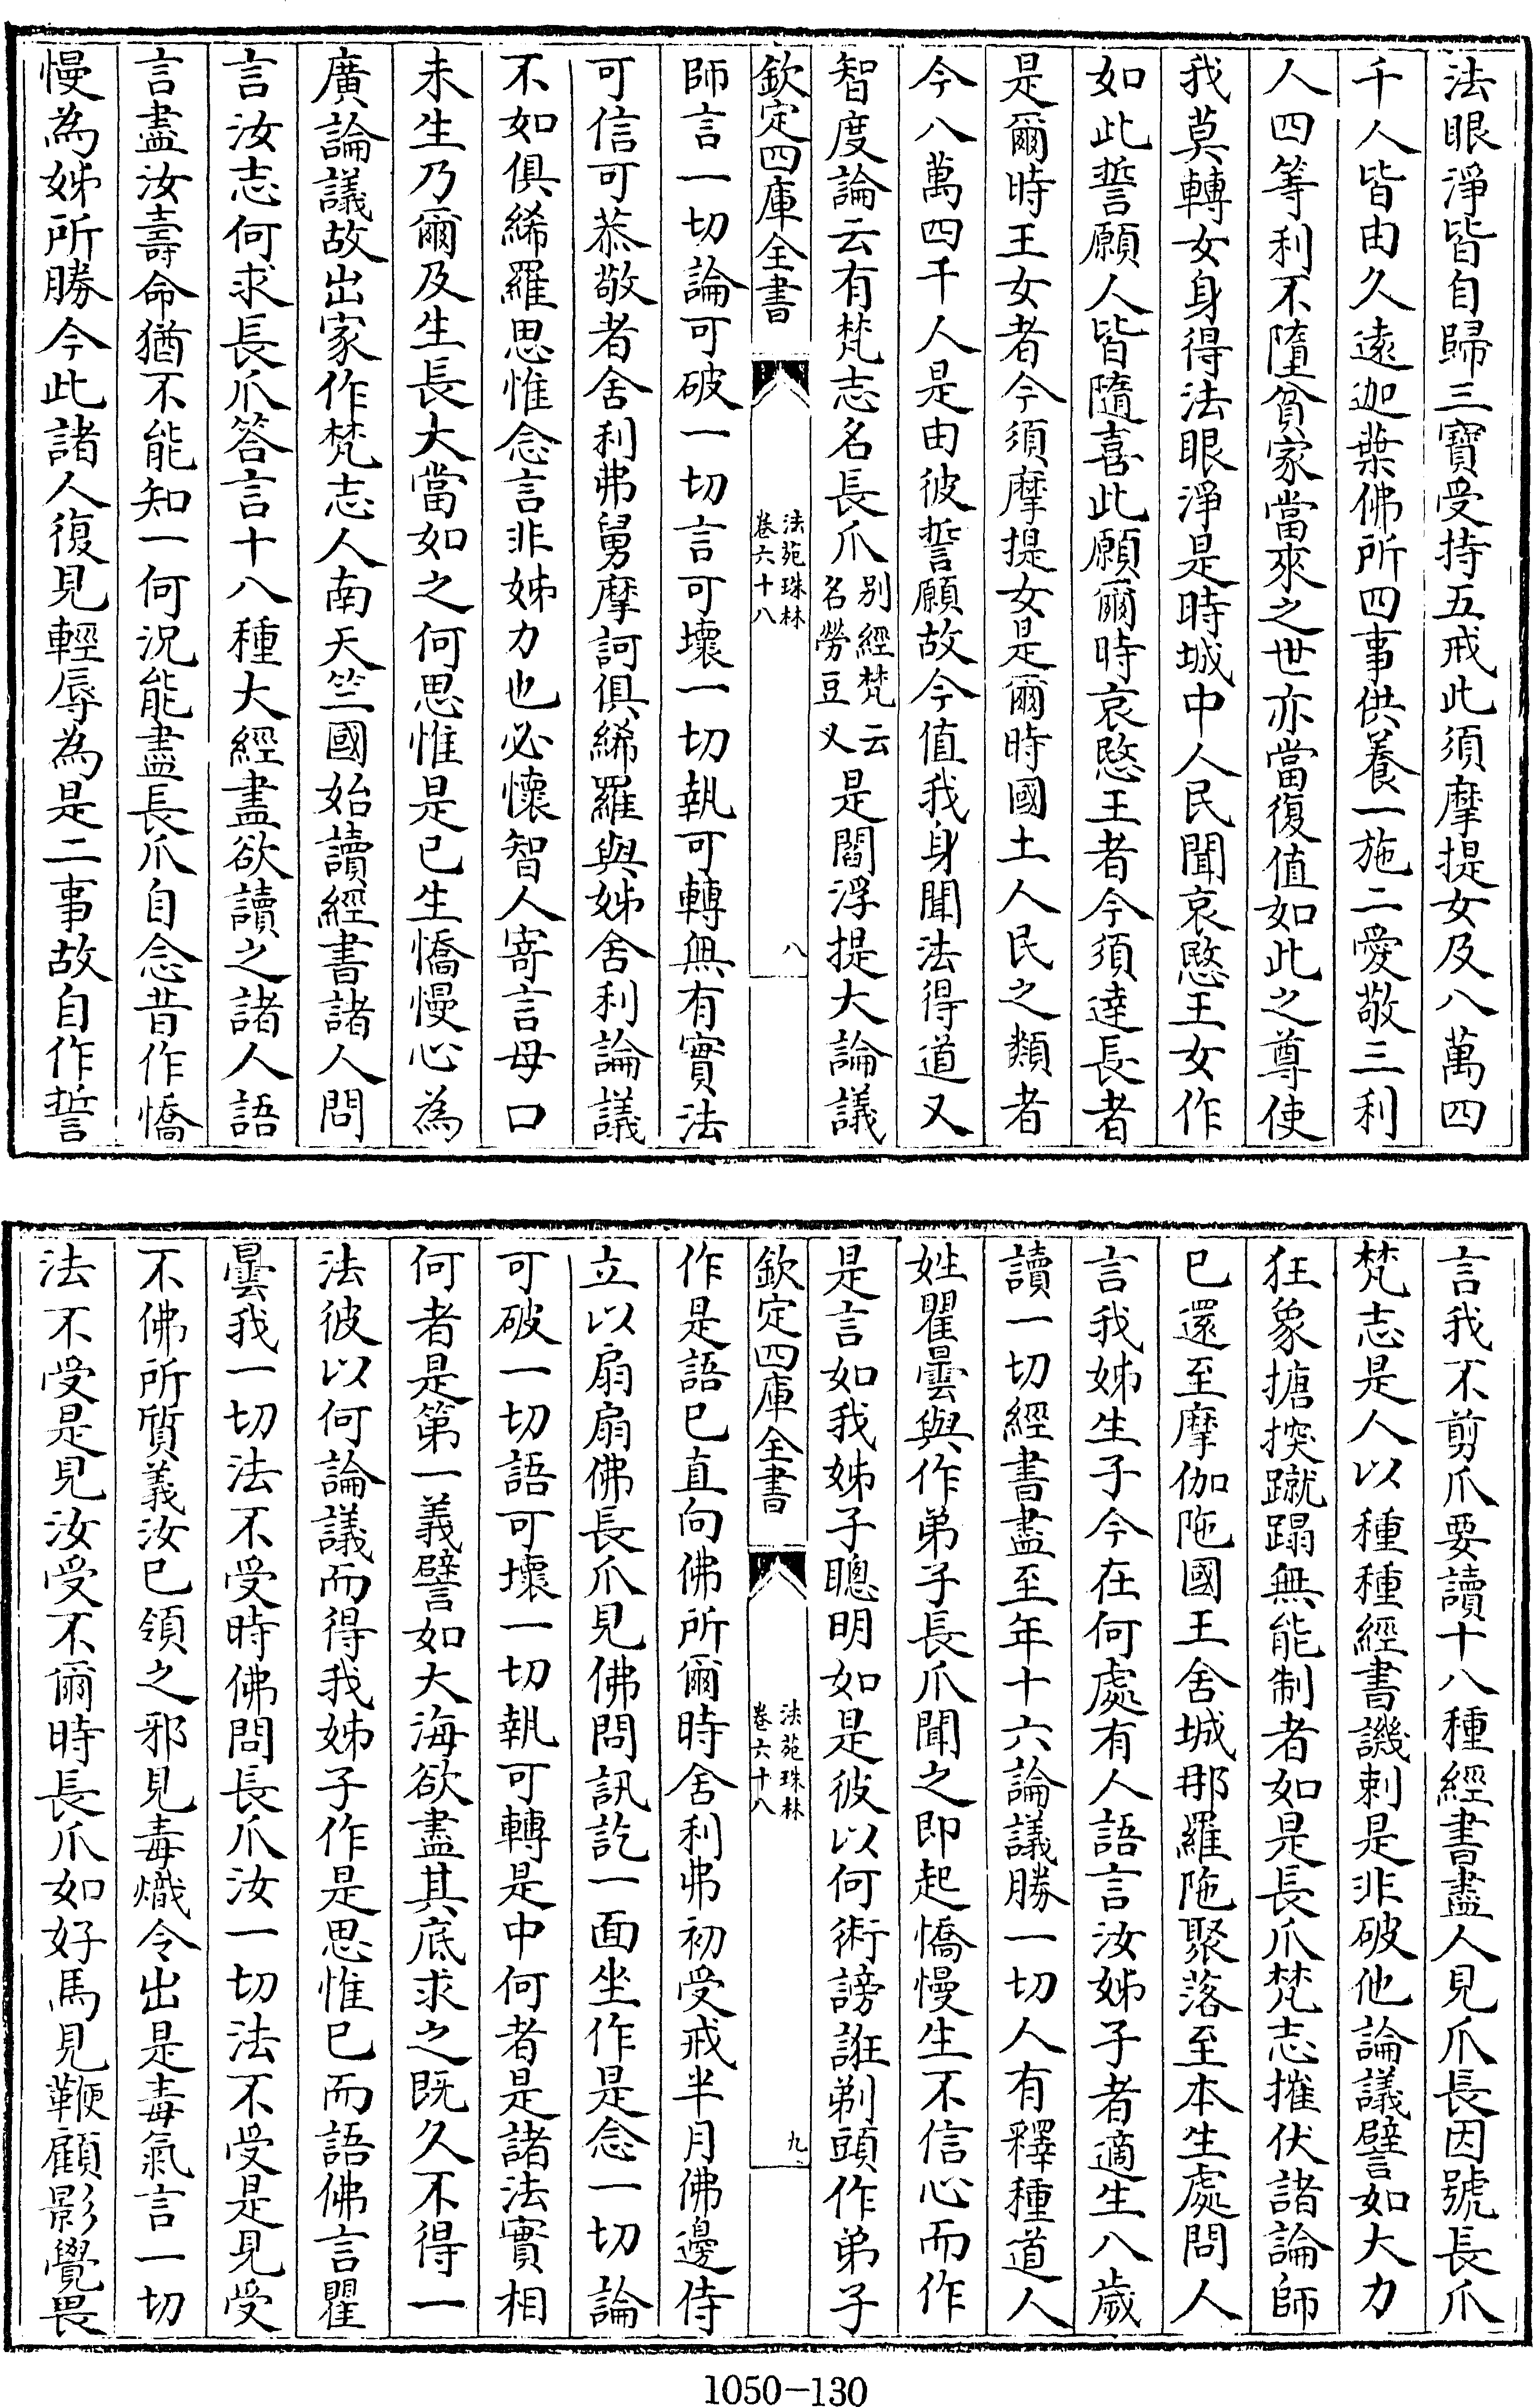 法眼淨皆自歸三寶受持五戒此須摩提女及八萬四
千人皆由久遠迦葉佛所四事供養一施二愛敬三利
人四等利不墮貧家當來之世亦當復值如此之尊使
我莫轉女身得法眼淨是時城中人民聞哀愍王女作
如此誓願人皆隨喜此願爾時哀愍王者今須達長者
是爾時王女者今須摩提女是爾時國土人民之類者
今八萬四千人是由彼誓願故今值我身聞法得道又
智度論云有梵志名長爪別經梵云名勞豆叉是閻浮提大論議
欽定四庫全書
法苑珠林
卷六十八
八
師言一切論可破一切言可壞一切執可轉無有實法
可信可恭敬者舍利弗舅摩訶俱絺羅與姊舍利論議
不如俱絺羅思惟念言非姊力也必懷智人寄言母口
未生乃爾及生長大當如之何思惟是已生憍慢心為
廣論議故出家作梵志人南天竺國始讀經書諸人問
言汝志何求長爪答言十八種大經盡欲讀之諸人語
言盡汝壽命猶不能知一何況能盡長爪自念昔作憍
慢為姊所勝今此諸人復見輕辱為是二事故自作誓
言我不剪爪要讀十八種經書盡人見爪長因號長爪
梵志是人以種種經書譏刺是非破他論議譬如大力
狂象搪揬蹴蹋無能制者如是長爪梵志摧伏諸論師
已還至摩伽陁國王舍城那羅陁聚落至本生處問人
言我姊生子今在何處有人語言汝姊子者適生八歲
讀一切經書盡至年十六論議勝一切人有釋種道人
姓瞿曇與作弟子長爪聞之即起憍慢生不信心而作
是言如我姊子聰明如是彼以何術謗誑剃頭作弟子
欽定四庫全書
法苑珠林
卷六十八
九
作是語已直向佛所爾時舍利弗初受戒半月佛邊侍
立以扇扇佛長爪見佛問訊訖一面坐作是念一切論
可破一切語可壞一切執可轉是中何者是諸法實相
何者是第一義譬如大海欲盡其底求之既久不得一
法彼以何論議而得我姊子作是思惟已而語佛言瞿
曇我一切法不受時佛問長爪汝一切法不受是見受
不佛所質義汝已領之邪見毒熾令出是毒氣言一切
法不受是見汝受不爾時長爪如好馬見鞭顧影覺畏
1050-130